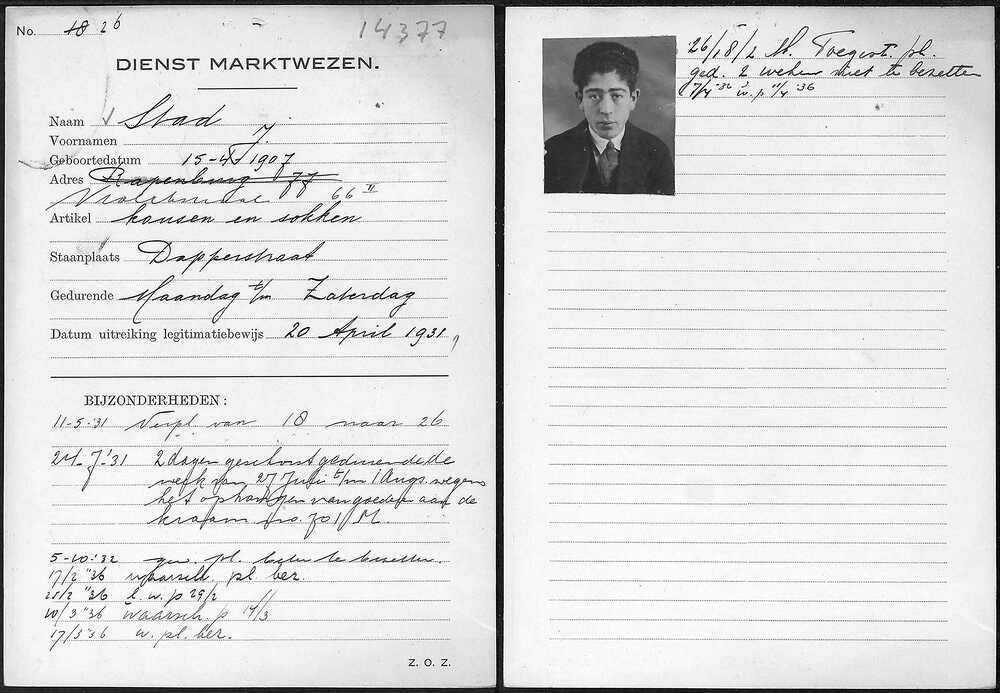 No. 18 26
14377
DIENST MARKTWEZEN.
Naam Stad
Voornamen J.
Geboortedatum 15-4-1907
Adres Rapenburg 77
66 II
Artikel kousen en sokken
Staanplaats Dapperstraat
Gedurende Maandag t/m Zaterdag
Datum uitreiking legitimatiebewijs 20 April 1931
BIJZONDERHEDEN:
11-5-'31 Verpl. van 18 naar 26
24-7-'31 2 dagen geschorst gedurende de
week van 27 Juli t/m 1 Augs. wegens
het ophangen van goederen aan de
kraam no. 701 M.
5-10-'32 gew. pl. beter te bezetten.
17/2 '36 waarsch. pl. bez.
25/2 '36 l. w. p 29/2
10/3 '36 waarsch. p 14/3
17/3 '36 w. pl. bez.
Z. O. Z.
26/18/2 M. Toegest. pl.
ged. 2 weken niet te bezetten
7/4 '36 w. p 11/4 '36